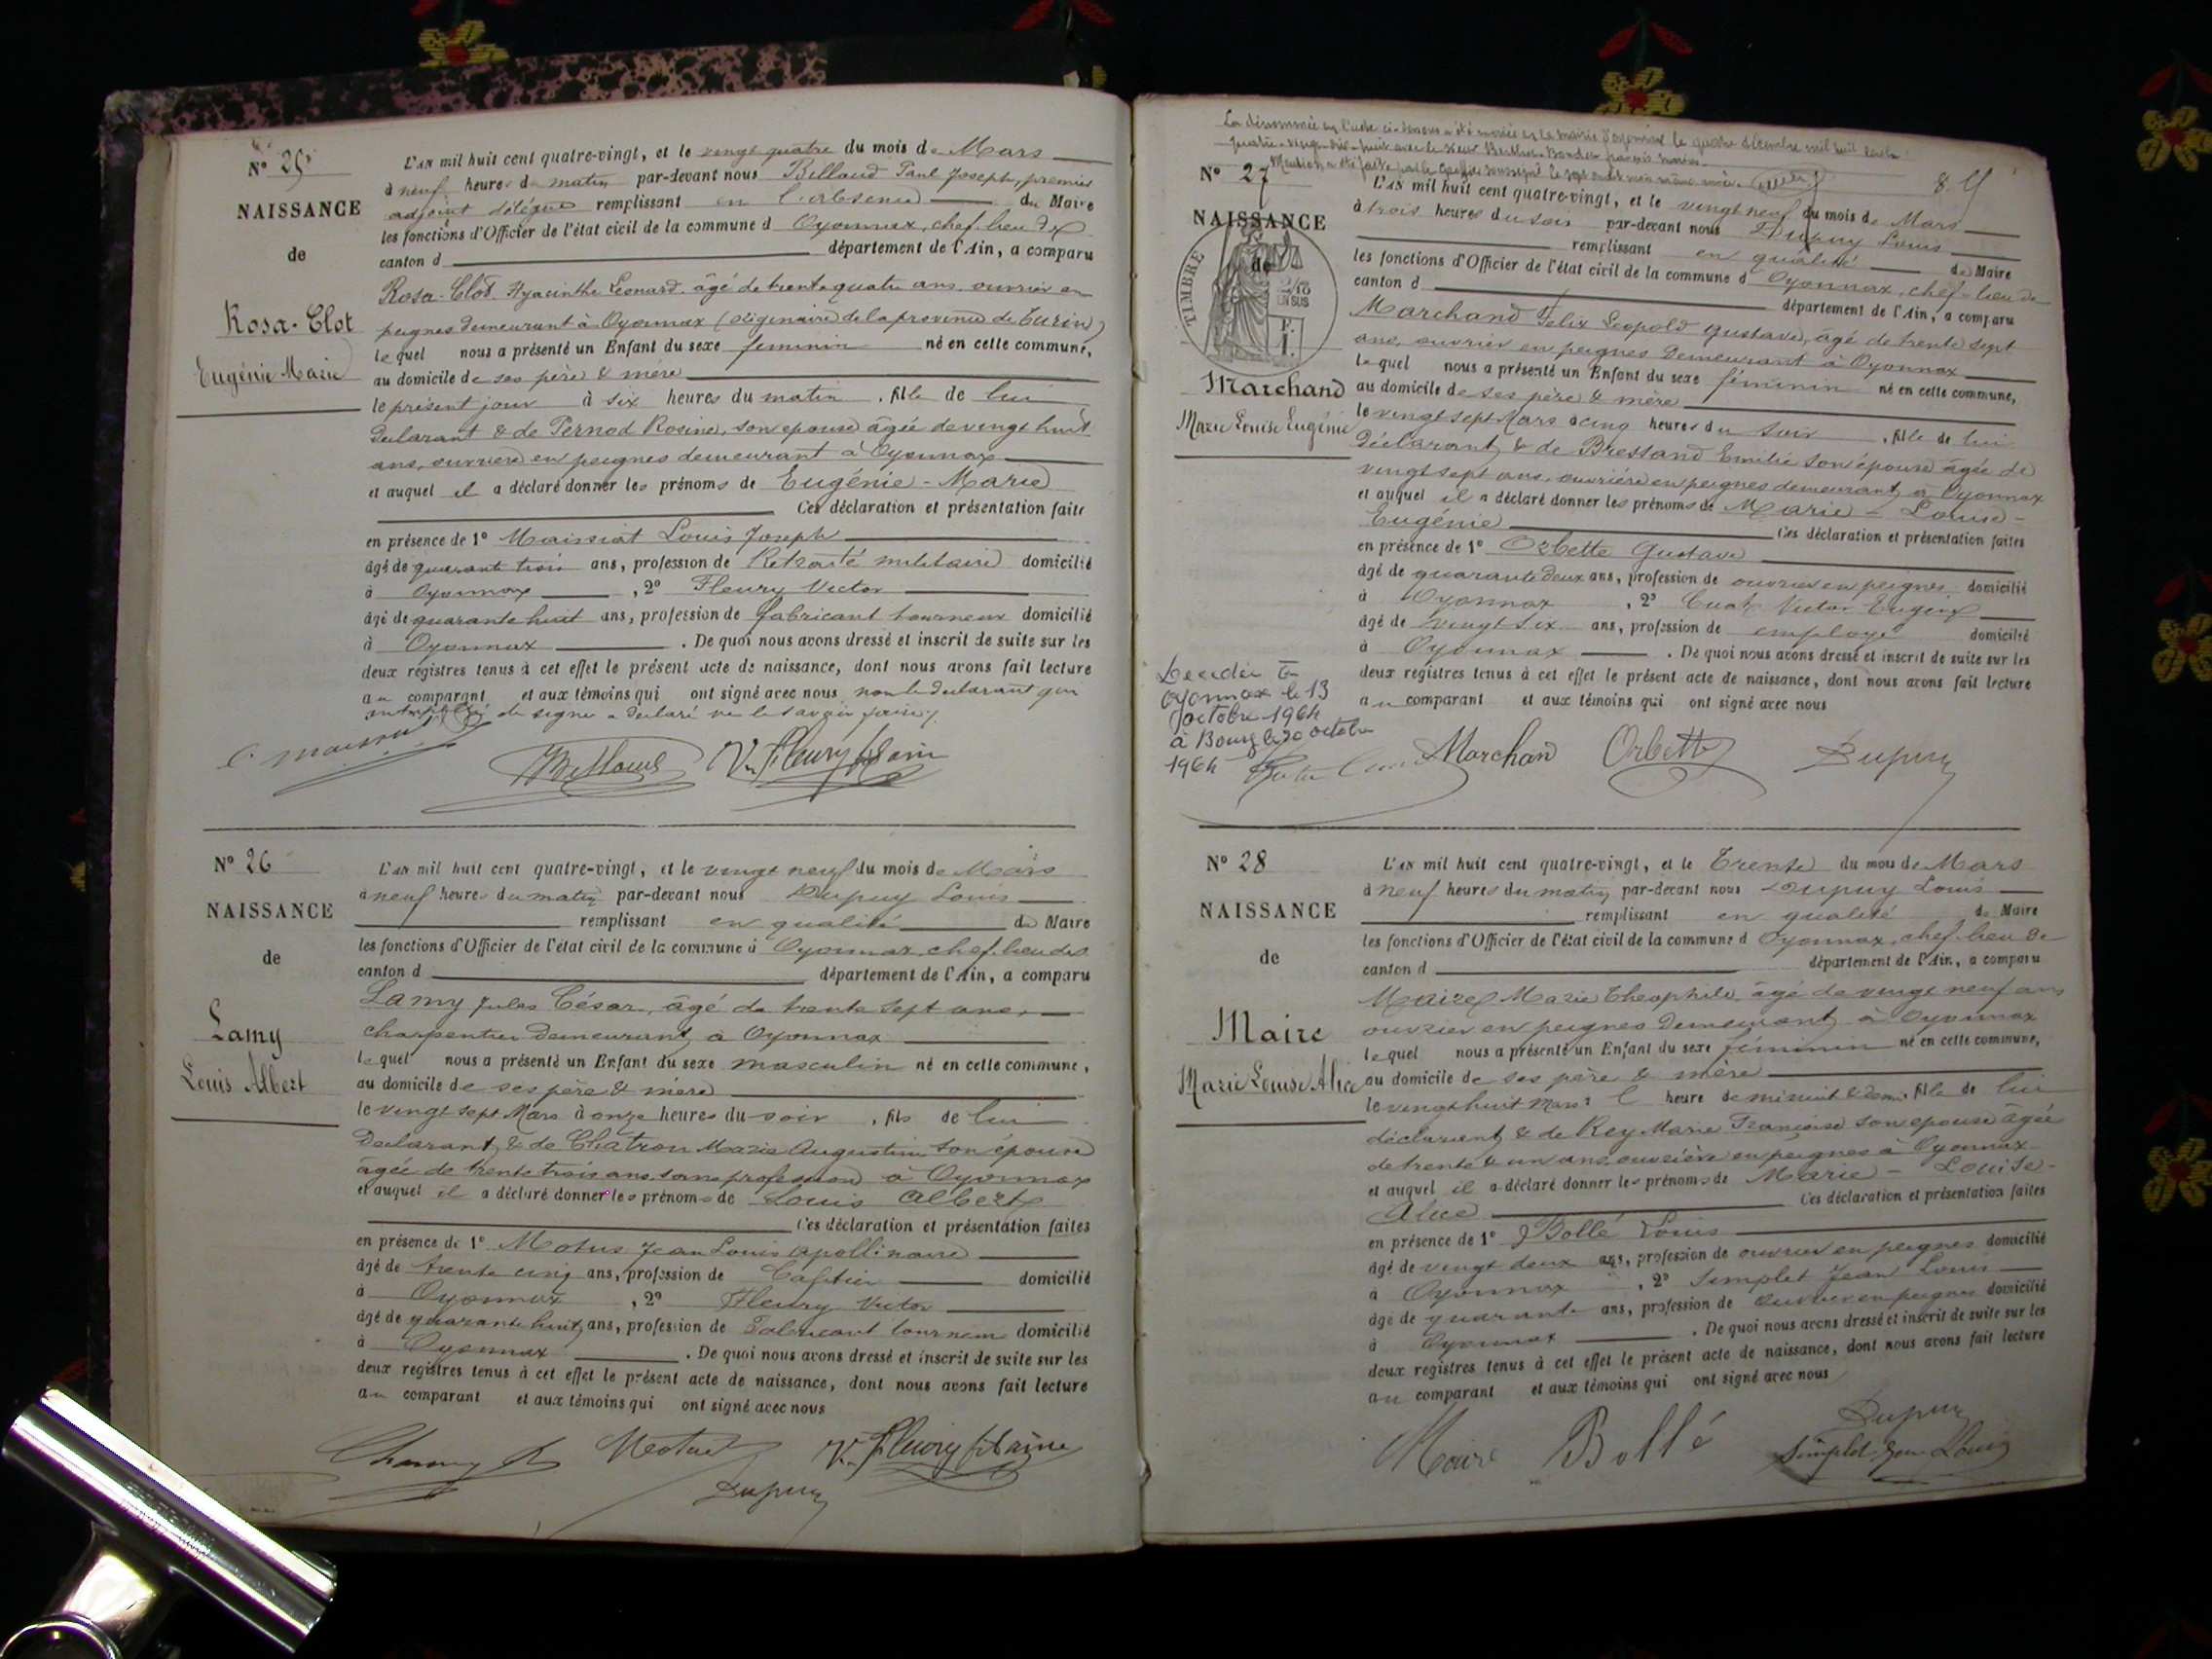 N° 25
NAISSANCE
de
Rosa-Clot
Eugénie Marie
L'AN mil huit cent quatre-vingt, et le vingt quatre du mois de Mars
à neuf heures du matin par-devant nous Billaud Paul Joseph, premier
adjoint délégué remplissant en l'absence du Maire
les fonctions d'Officier de l'état civil de la commune d Oyonnax, chef-lieu de
canton d département de l'Ain, a comparu
Rosa-Clot Hyacinthe Léonard âgé de trente quatre ans, ouvrier en
peignes demeurant à Oyonnax (originaire de la province de Turin)
lequel nous a présenté un Enfant du sexe féminin né en cette commune,
au domicile de ses père & mère
le présent jour à six heures du matin, fille de lui
déclarant & de Pernod Rosine, son épouse âgée de vingt huit
ans, ouvrière en peignes demeurant à Oyonnax
et auquel il a déclaré donner les prénoms de Eugénie-Marie
Ces déclaration et présentation faite
en présence de 1° Maissiat Louis Joseph
âgé de quarante trois ans, profession de Retraité militaire domicilié
à Oyonnax, 2° Fleury Victor
âgé de quarante huit ans, profession de fabricant tourneur domicilié
à Oyonnax. De quoi nous avons dressé et inscrit de suite sur les
deux registres tenus à cet effet le présent acte de naissance, dont nous avons fait lecture
au comparant et aux témoins qui ont signé avec nous non le déclarant qui
de signer a déclaré ne le savoir faire
Billaud V. Fleury fils aîné
N° 26
NAISSANCE
de
Lamy
Louis Albert
L'AN mil huit cent quatre-vingt, et le vingt neuf du mois de Mars
à neuf heures du matin par-devant nous Dupuy Louis
remplissant en qualité de Maire
les fonctions d'Officier de l'état civil de la commune d Oyonnax, chef-lieu de
canton d département de l'Ain, a comparu
Lamy Jules César, âgé de trente sept ans,
charpentier demeurant à Oyonnax
lequel nous a présenté un Enfant du sexe masculin né en cette commune,
au domicile de ses père & mère
le vingt sept Mars à onze heures du soir, fils de lui
déclarant & de Chatron Marie Augustine son épouse
âgée de trente trois ans, sans profession à Oyonnax
et auquel il a déclaré donner les prénoms de Louis Albert
Ces déclaration et présentation faites
en présence de 1° Motus Jean Louis Apollinaire
âgé de trente cinq ans, profession de Cafetier domicilié
à Oyonnax, 2° Fleury Victor
âgé de quarante huit ans, profession de Fabricant tourneur domicilié
à Oyonnax. De quoi nous avons dressé et inscrit de suite sur les
deux registres tenus à cet effet le présent acte de naissance, dont nous avons fait lecture
au comparant et aux témoins qui ont signé avec nous
Motus V. Fleury fils aîné
Dupuy
La dénommée en l'acte ci-dessous a été mariée en la mairie d'Oyonnax le quatre décembre mil huit cent
quatre-vingt-dix-huit avec le sieur
Mention a été faite par le Greffier soussigné le sept
N° 27
NAISSANCE
de
TIMBRE
2/10
EN SUS
Marchand
Marie Louise Eugénie
L'AN mil huit cent quatre-vingt, et le vingt neuf du mois de Mars
à trois heures du soir par-devant nous Dupuy Louis
remplissant en qualité de Maire
les fonctions d'Officier de l'état civil de la commune d Oyonnax, chef-lieu de
canton d département de l'Ain, a comparu
Marchand Félix Léopold Gustave, âgé de trente sept
ans, ouvrier en peignes demeurant à Oyonnax
lequel nous a présenté un Enfant du sexe féminin né en cette commune,
au domicile de ses père & mère
le vingt sept Mars à cinq heures du soir, fille de lui
déclarant & de Bressand Emilie son épouse âgée de
vingt sept ans, ouvrière en peignes demeurant à Oyonnax
et auquel il a déclaré donner les prénoms de Marie-Louise-
Eugénie Ces déclaration et présentation faites
en présence de 1° Orbette Gustave
âgé de quarante deux ans, profession de ouvrier en peignes domicilié
à Oyonnax, 2° Victor Eugène
âgé de vingt six ans, profession de employé domicilié
à Oyonnax. De quoi nous avons dressé et inscrit de suite sur les
deux registres tenus à cet effet le présent acte de naissance, dont nous avons fait lecture
au comparant et aux témoins qui ont signé avec nous
Décédée à
Oyonnax le 13
octobre 1964
à Bourg le 20 octobre
1964
Marchand Orbette Dupuy
N° 28
NAISSANCE
de
Maire
Marie Louise Alice
L'AN mil huit cent quatre-vingt, et le trente du mois de Mars
à neuf heures du matin par-devant nous Dupuy Louis
remplissant en qualité de Maire
les fonctions d'Officier de l'état civil de la commune d Oyonnax, chef-lieu de
canton d département de l'Ain, a comparu
Maire Marie Théophile âgé de vingt neuf ans
ouvrier en peignes demeurant à Oyonnax
lequel nous a présenté un Enfant du sexe féminin né en cette commune,
au domicile de ses père & mère
le vingt huit Mars à l heure de minuit & demi, fille de lui
déclarant & de Rey Marie Françoise son épouse âgée
de trente & un ans, ouvrière en peignes à Oyonnax
et auquel il a déclaré donner les prénoms de Marie-Louise-
Alice Ces déclaration et présentation faites
en présence de 1° Bollé Louis
âgé de vingt deux ans, profession de ouvrier en peignes domicilié
à Oyonnax, 2° Simplet Jean Louis
âgé de quarante ans, profession de ouvrier en peignes domicilié
à Oyonnax. De quoi nous avons dressé et inscrit de suite sur les
deux registres tenus à cet effet le présent acte de naissance, dont nous avons fait lecture
au comparant et aux témoins qui ont signé avec nous
Dupuy
Maire Bollé Simplet Jean Louis